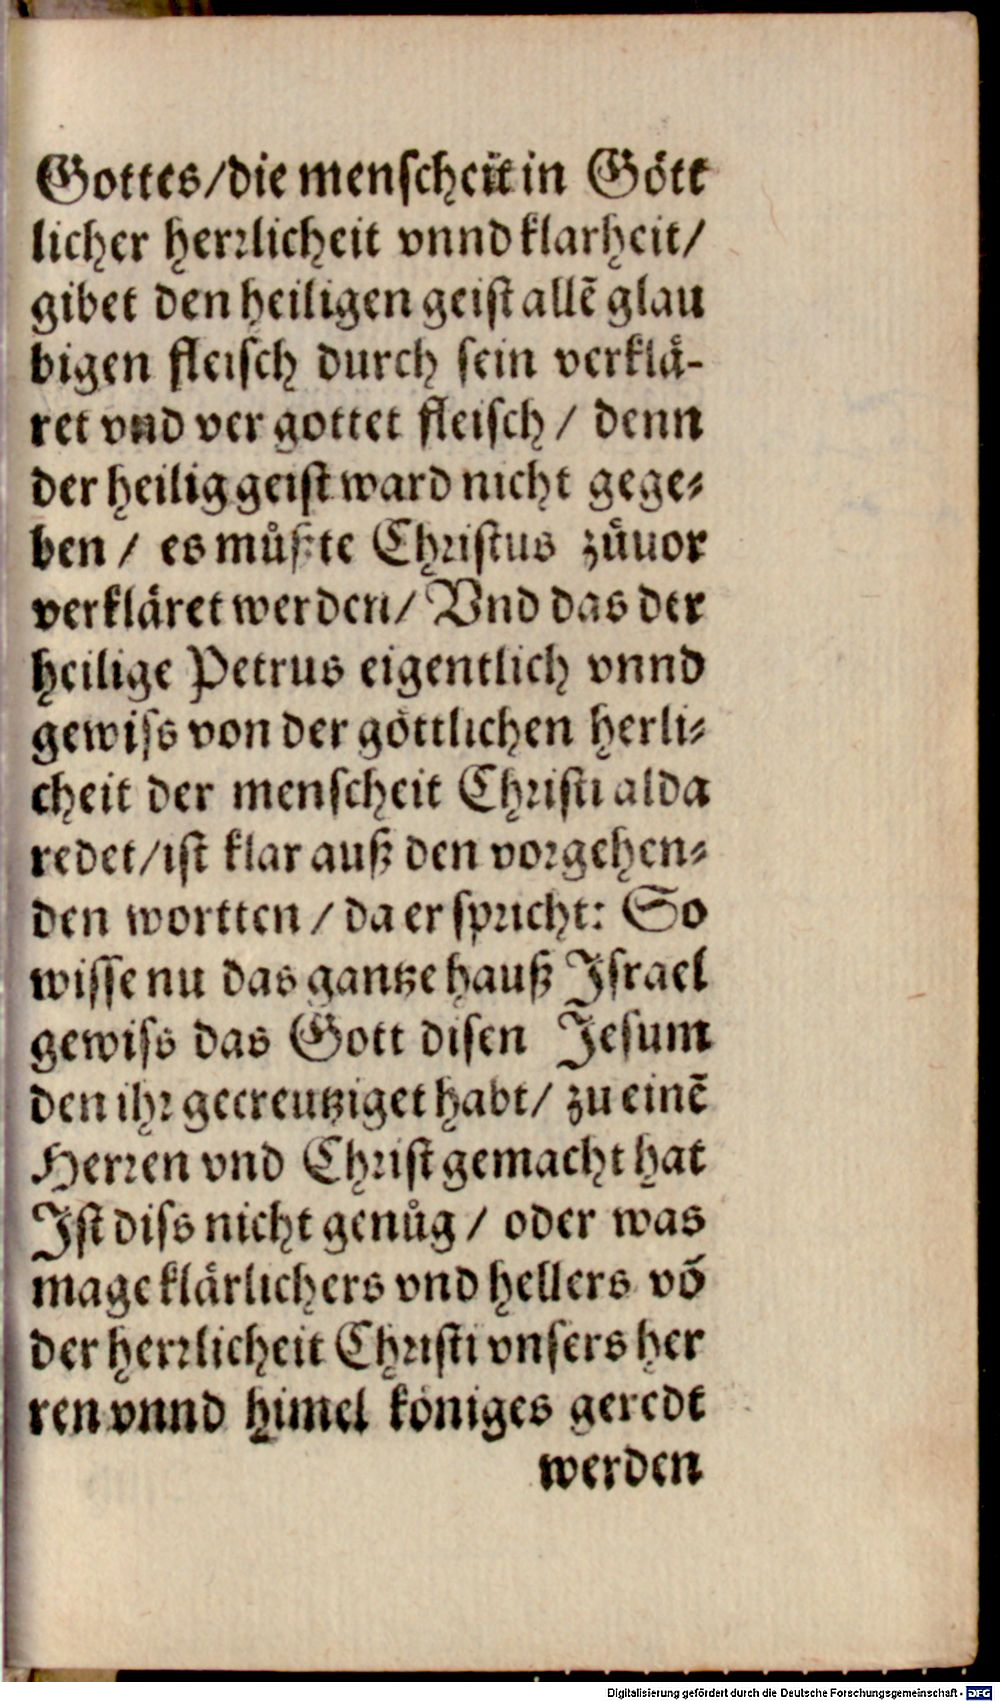 Gottes/die menscheit in Gött
licher herrlicheit vnnd klarheit/
gibet den heiligen geist allẽ glau
bigen fleisch durch sein verklä-
ret vnd ver gottet fleisch / denn
der heilig geist ward nicht gege-
ben / es můßte Christus zůuor
verkläret werden/ Vnd das der
heilige Petrus eigentlich vnnd
gewiss von der göttlichen herli-
cheit der menscheit Christi alda
redet/ist klar auß den vorgehen-
den wortten / da er spricht: So
wisse nu das gantze hauß Israel
gewiss das Gott disen Jesum
den ihr gecreutziget habt/ zu einẽ
Herren vnd Christ gemacht hat
Ist diss nicht genůg / oder was
mage klärlichers vnd hellers võ
der herrlicheit Christi vnsers her
ren vnnd himel königes geredt
werden
Digitalisierung gefördert durch die Deutsche Forschungsgemeinschaft - DFG